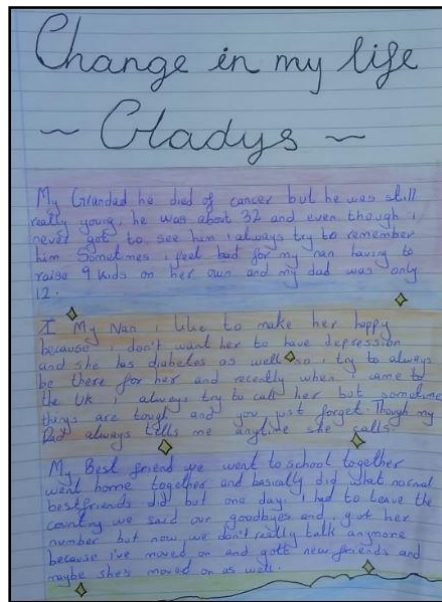 Change in my life
~ Gladys ~
My Grandad he died of cancer but he was still
really young, he was about 32 and even though i
never got to see him i always try to remember
him Sometimes i feel bad for my nan having to
raise 9 kids on her own and my dad was only
12.
I My Nan i like to make her happy
because i don't want her to have depression
and she has diabetes as well so i try to always
be there for her and recently when i came to
the UK i always try to call her but sometime
things are tough and you just forget Though my
Dad always tells me anytime she calls.
My Best friend we went to school together
went home together and basically did what normal
bestfriends did but one day i had to leave the
country we said our goodbyes and i got her
number but now we don't really talk anymore
because i've moved on and gott new friends and
maybe she's moved on as well.